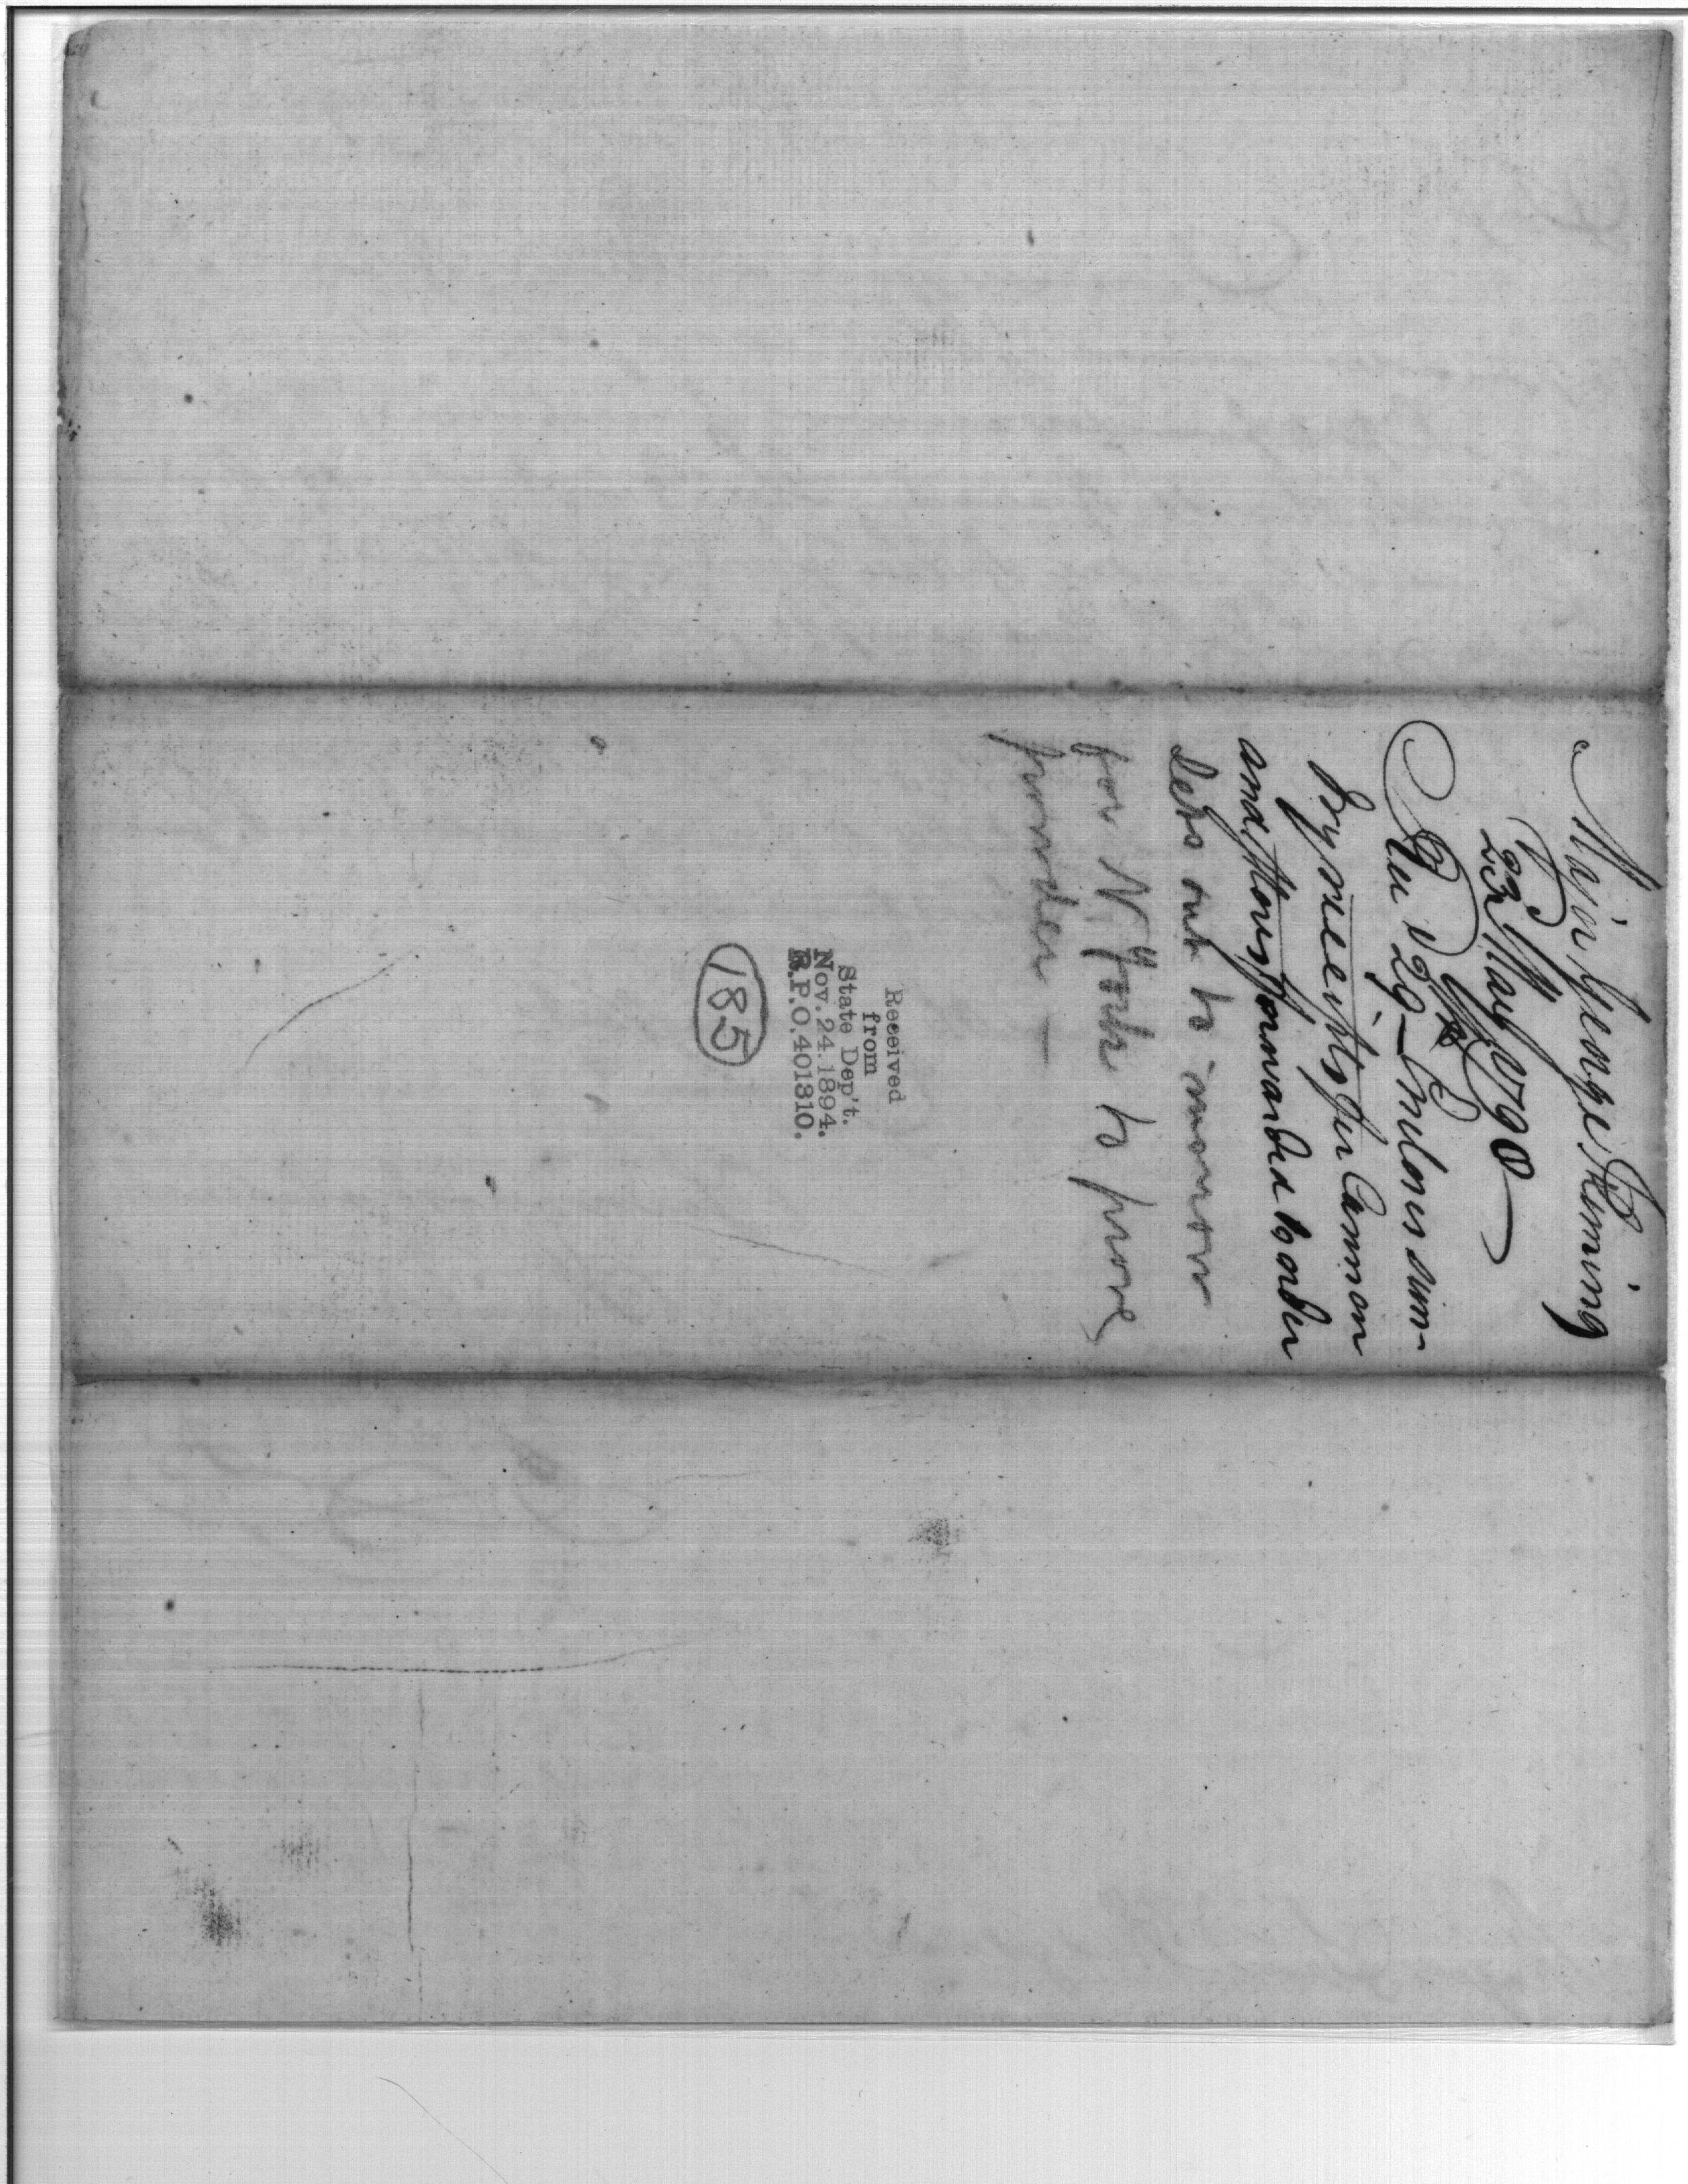 Major George Fleming
23d May 1798
Rec'd 29 - Encloses dum-
by receipts for Cannon
and Stores forwarded to order
Sets out to morrow
for N York to prove
powder —
Received
from
State Dep't.
Nov. 24. 1894.
R.P.O. 401310.
185